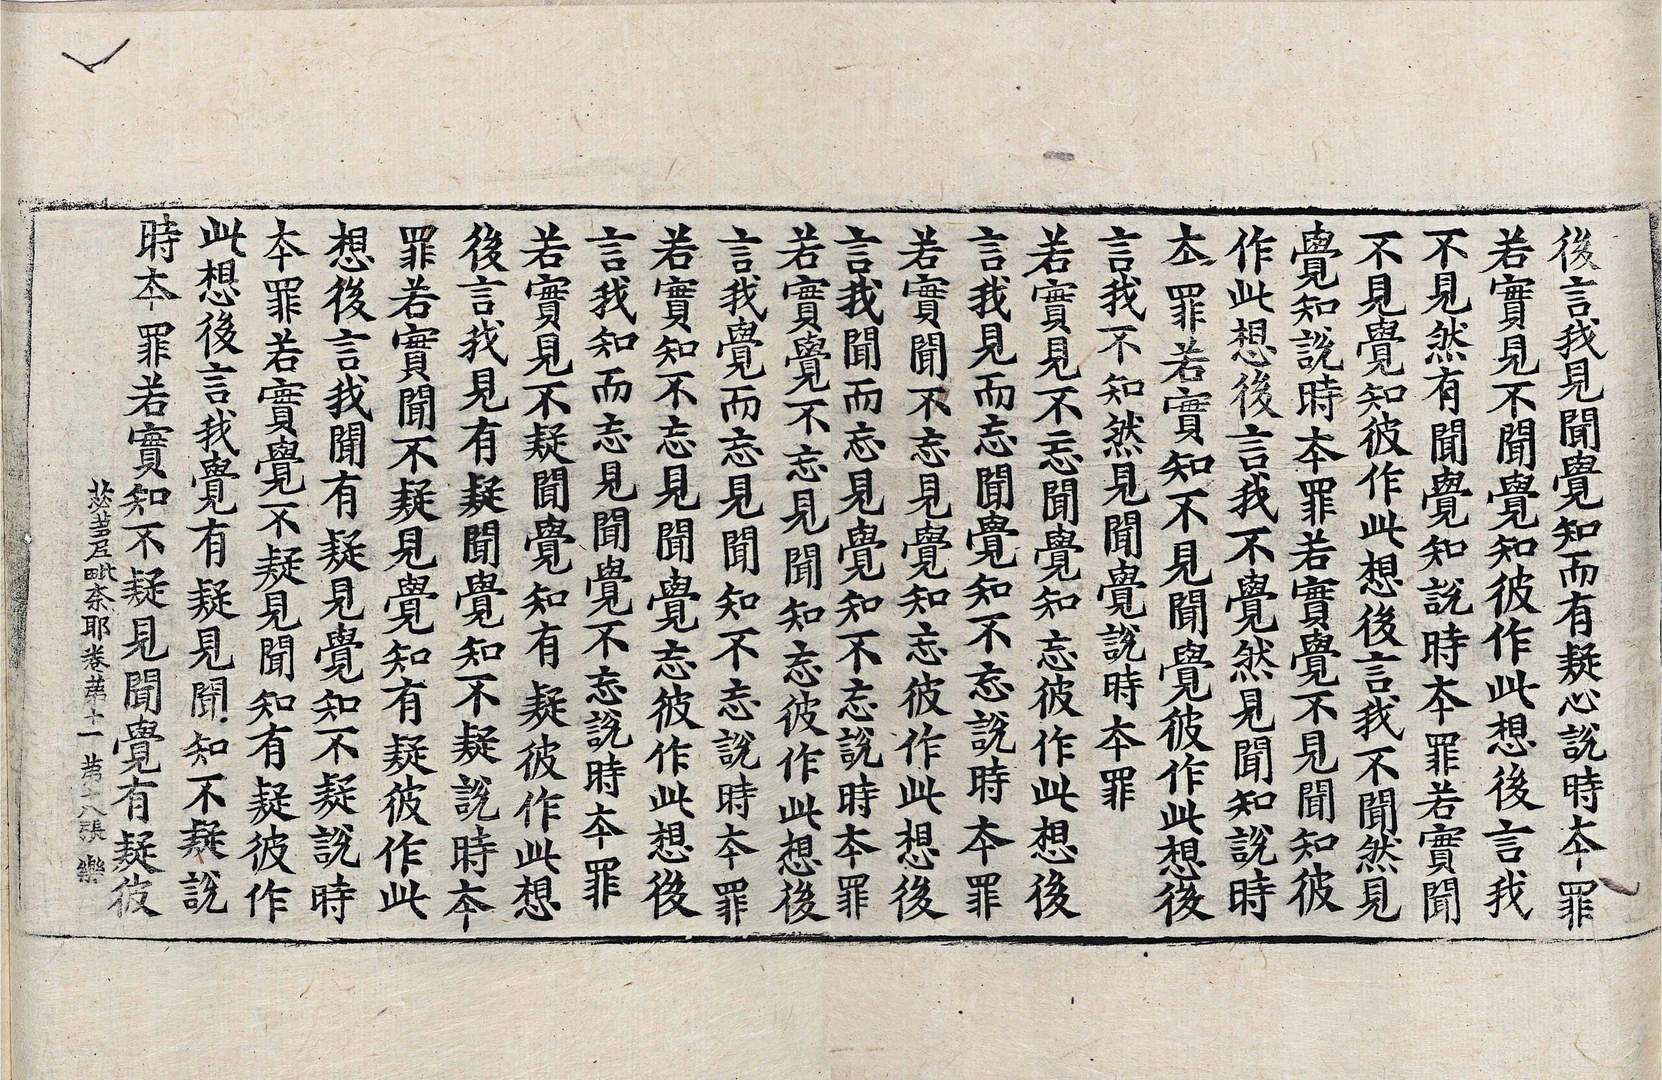 後言我見聞覺知而有疑心說時夲罪
若實見不聞覺知彼作此想後言我
不見然有聞覺知說時夲罪若實聞
不見覺知彼作此想後言我不聞然見
覺知說時夲罪若實覺不見聞知彼
作此想後言我不覺然見聞知說時
夲罪若實知不見聞覺彼作此想後
言我不知然見聞覺說時夲罪
若實見不忘聞覺知忘彼作此想後
言我見而忘聞覺知不忘說時夲罪
若實聞不忘見覺知忘彼作此想後
言我聞而忘見覺知不忘說時夲罪
若實覺不忘見聞知忘彼作此想後
言我覺而忘見聞知不忘說時夲罪
若實知不忘見聞覺忘彼作此想後
言我知而忘見聞覺不忘說時夲罪
若實見不疑聞覺知有疑彼作此想
後言我見有疑聞覺知不疑說時夲
罪若實聞不疑見覺知有疑彼作此
想後言我聞有疑見覺知不疑說時
夲罪若實覺不疑見聞知有疑彼作
此想後言我覺有疑見聞知不疑說
時夲罪若實知不疑見聞覺有疑彼
苾芻尼毗奈耶卷第十一 第十八張 樂